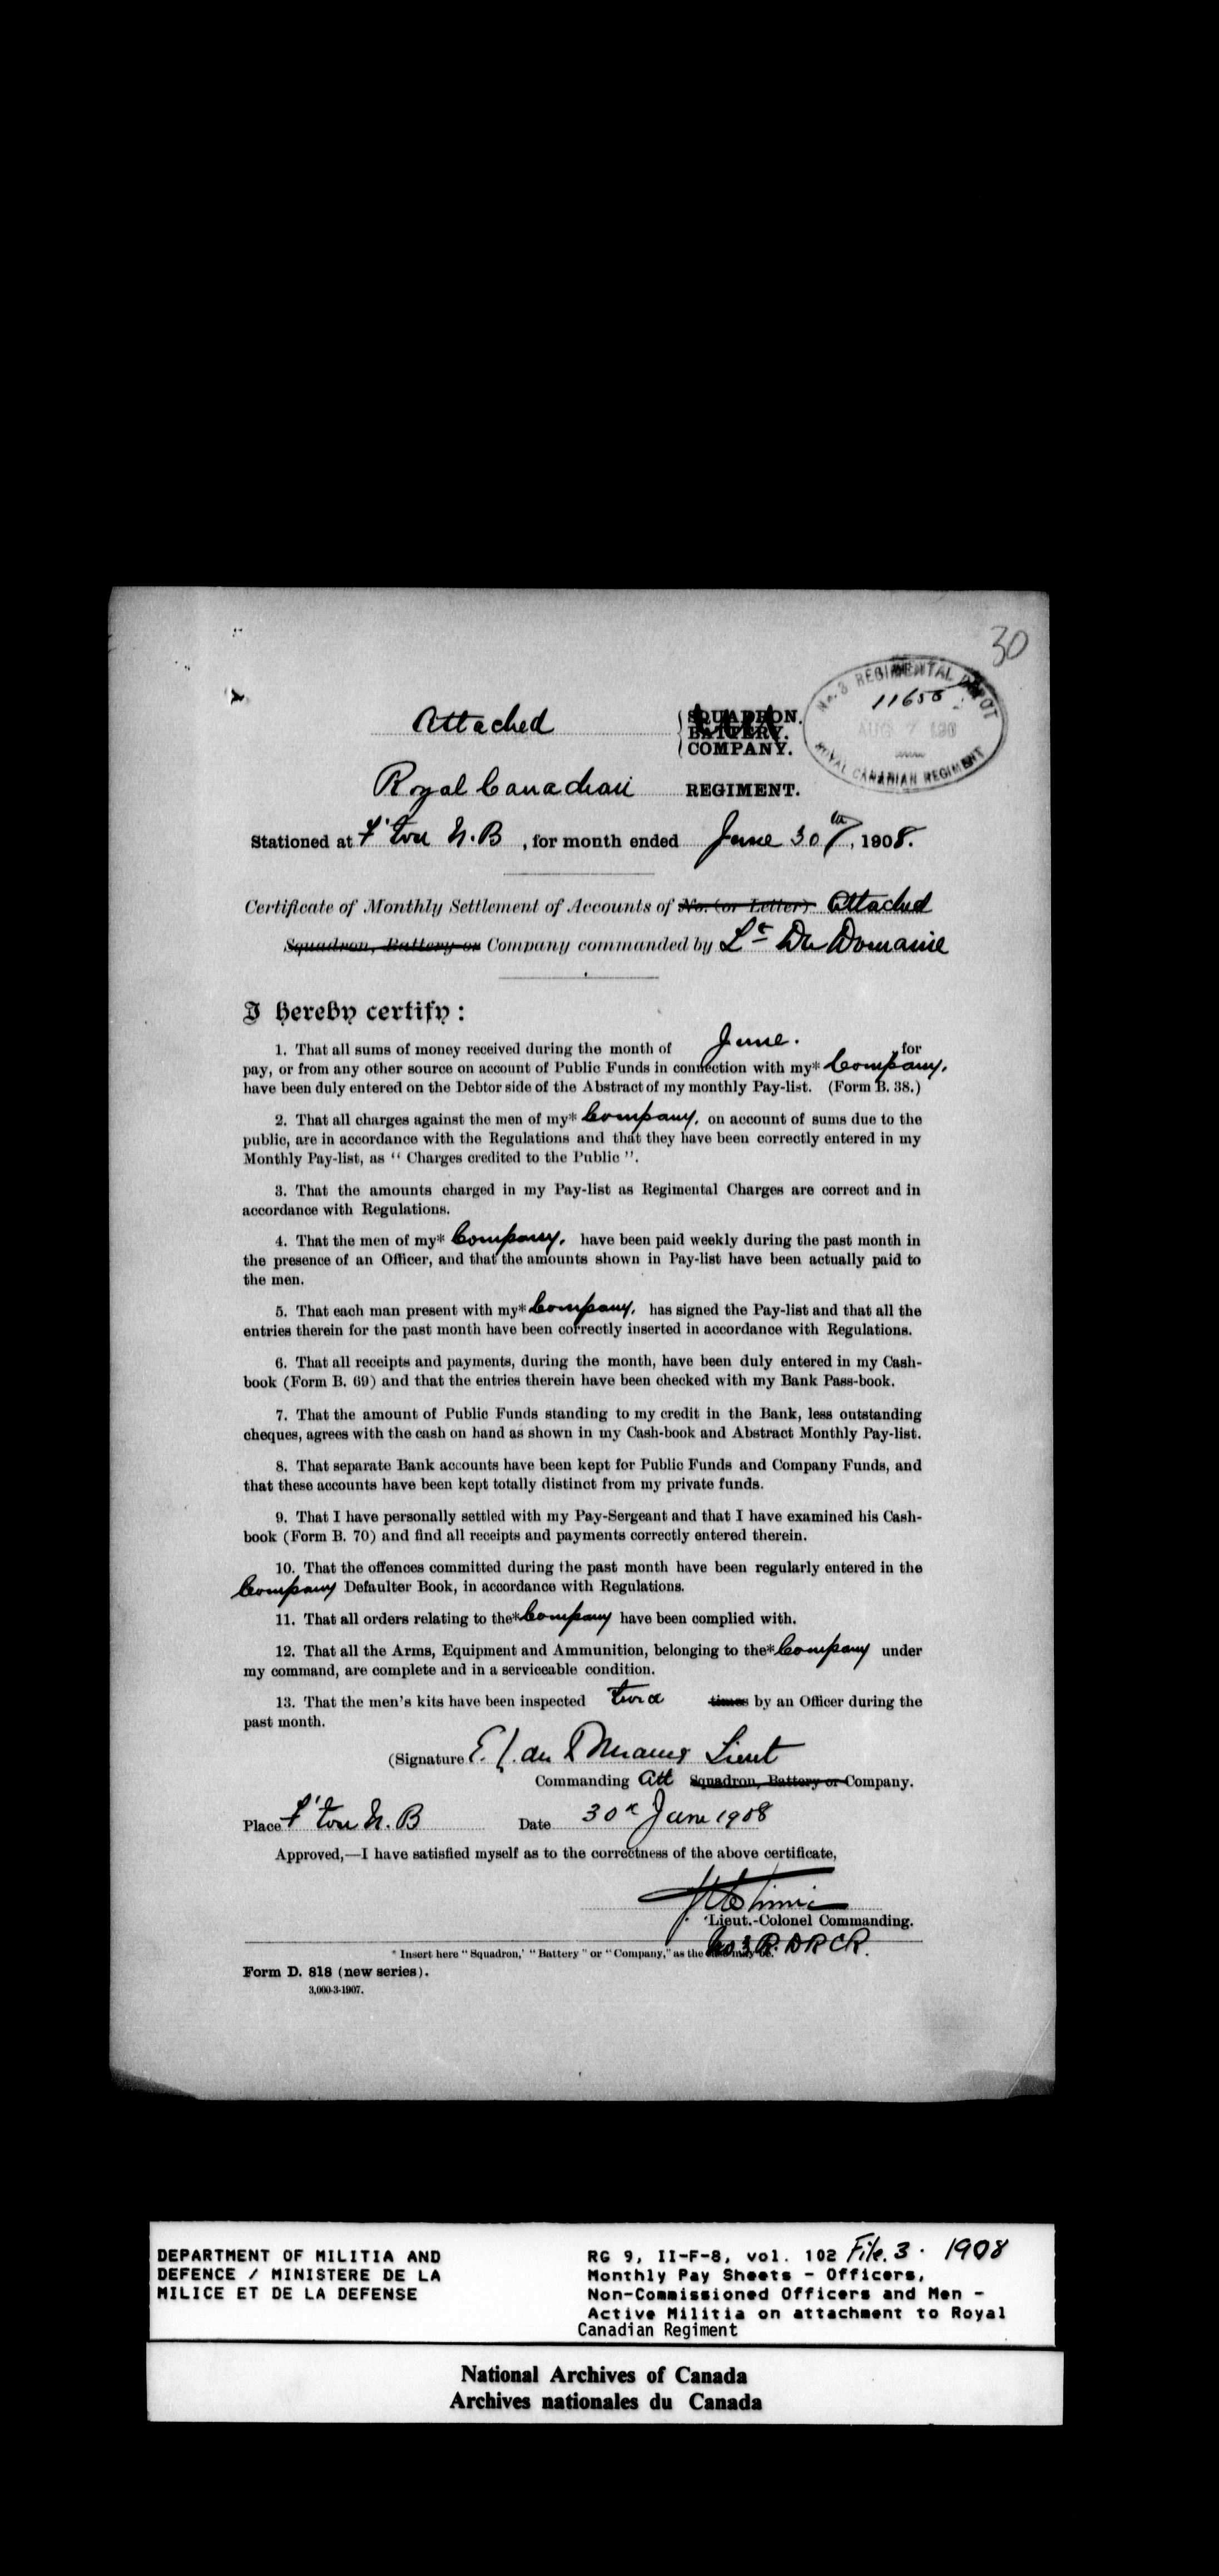 30
No. 3 REGIMENTAL DEPOT
11655
AUG 7 190
ROYAL CANADIAN REGIMENT
Attached
SQUADRON.
BATTERY.
COMPANY.
Royal Canadian REGIMENT.
Stationed at F'ton N.B, for month ended June 30th, 1908.
Certificate of Monthly Settlement of Accounts of No. (or Letter) Attached
Squadron, Battery or Company commanded by Lt Du Domaine
I hereby certify:
1. That all sums of money received during the month of June. for
pay, or from any other source on account of Public Funds in connection with my* Company.
have been duly entered on the Debtor side of the Abstract of my monthly Pay-list. (Form B. 38.)
2. That all charges against the men of my* Company. on account of sums due to the
public, are in accordance with the Regulations and that they have been correctly entered in my
Monthly Pay-list, as “ Charges credited to the Public ”.
3. That the amounts charged in my Pay-list as Regimental Charges are correct and in
accordance with Regulations.
4. That the men of my* Company. have been paid weekly during the past month in
the presence of an Officer, and that the amounts shown in Pay-list have been actually paid to
the men.
5. That each man present with my* Company. has signed the Pay-list and that all the
entries therein for the past month have been correctly inserted in accordance with Regulations.
6. That all receipts and payments, during the month, have been duly entered in my Cash-
book (Form B. 69) and that the entries therein have been checked with my Bank Pass-book.
7. That the amount of Public Funds standing to my credit in the Bank, less outstanding
cheques, agrees with the cash on hand as shown in my Cash-book and Abstract Monthly Pay-list.
8. That separate Bank accounts have been kept for Public Funds and Company Funds, and
that these accounts have been kept totally distinct from my private funds.
9. That I have personally settled with my Pay-Sergeant and that I have examined his Cash-
book (Form B. 70) and find all receipts and payments correctly entered therein.
10. That the offences committed during the past month have been regularly entered in the
Company Defaulter Book, in accordance with Regulations.
11. That all orders relating to the* Company have been complied with.
12. That all the Arms, Equipment and Ammunition, belonging to the* Company under
my command, are complete and in a serviceable condition.
13. That the men's kits have been inspected times by an Officer during the
past month.
(Signature E. du Domaine Lieut
Commanding Att Squadron, Battery or Company.
Place F'ton N.B Date 30th June 1908
Approved,—I have satisfied myself as to the correctness of the above certificate,
Lieut.-Colonel Commanding.
No 3 R. D R C R.
* Insert here “ Squadron,' “ Battery ” or “ Company,” as the case may be.
Form D. 818 (new series).
3,000-3-1907.
DEPARTMENT OF MILITIA AND
DEFENCE / MINISTERE DE LA
MILICE ET DE LA DEFENSE
RG 9, II-F-8, vol. 102 File. 3. 1908
Monthly Pay Sheets - Officers,
Non-Commissioned Officers and Men -
Active Militia on attachment to Royal
Canadian Regiment
National Archives of Canada
Archives nationales du Canada